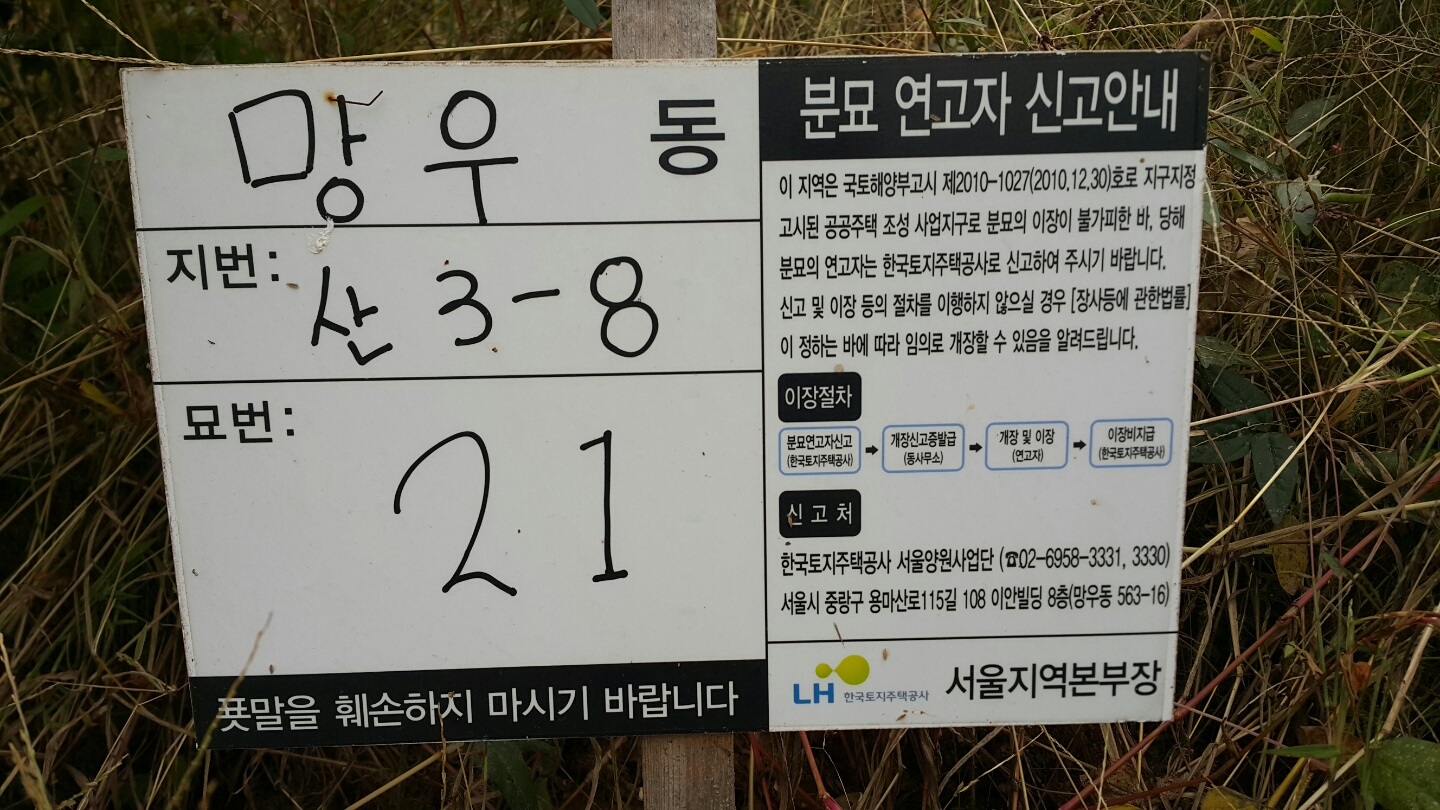 망우 동
지번: 산 3-8
묘번: 21
푯말을 훼손하지 마시기 바랍니다
분묘 연고자 신고안내
이 지역은 국토해양부고시 제2010-1027(2010.12.30)호로 지구지정
고시된 공공주택 조성 사업지구로 분묘의 이장이 불가피한 바, 당해
분묘의 연고자는 한국토지주택공사로 신고하여 주시기 바랍니다.
신고 및 이장 등의 절차를 이행하지 않으실 경우 [장사등에 관한법률]
이 정하는 바에 따라 임의로 개장할 수 있음을 알려드립니다.
이장절차
분묘연고자신고 (한국토지주택공사) ➡ 개장신고증발급 (동사무소) ➡ 개장 및 이장 (연고자) ➡ 이장비지급 (한국토지주택공사)
신 고 처
한국토지주택공사 서울양원사업단 (☎02-6958-3331, 3330)
서울시 중랑구 용마산로115길 108 이안빌딩 8층(망우동 563-16)
LH 한국토지주택공사 서울지역본부장